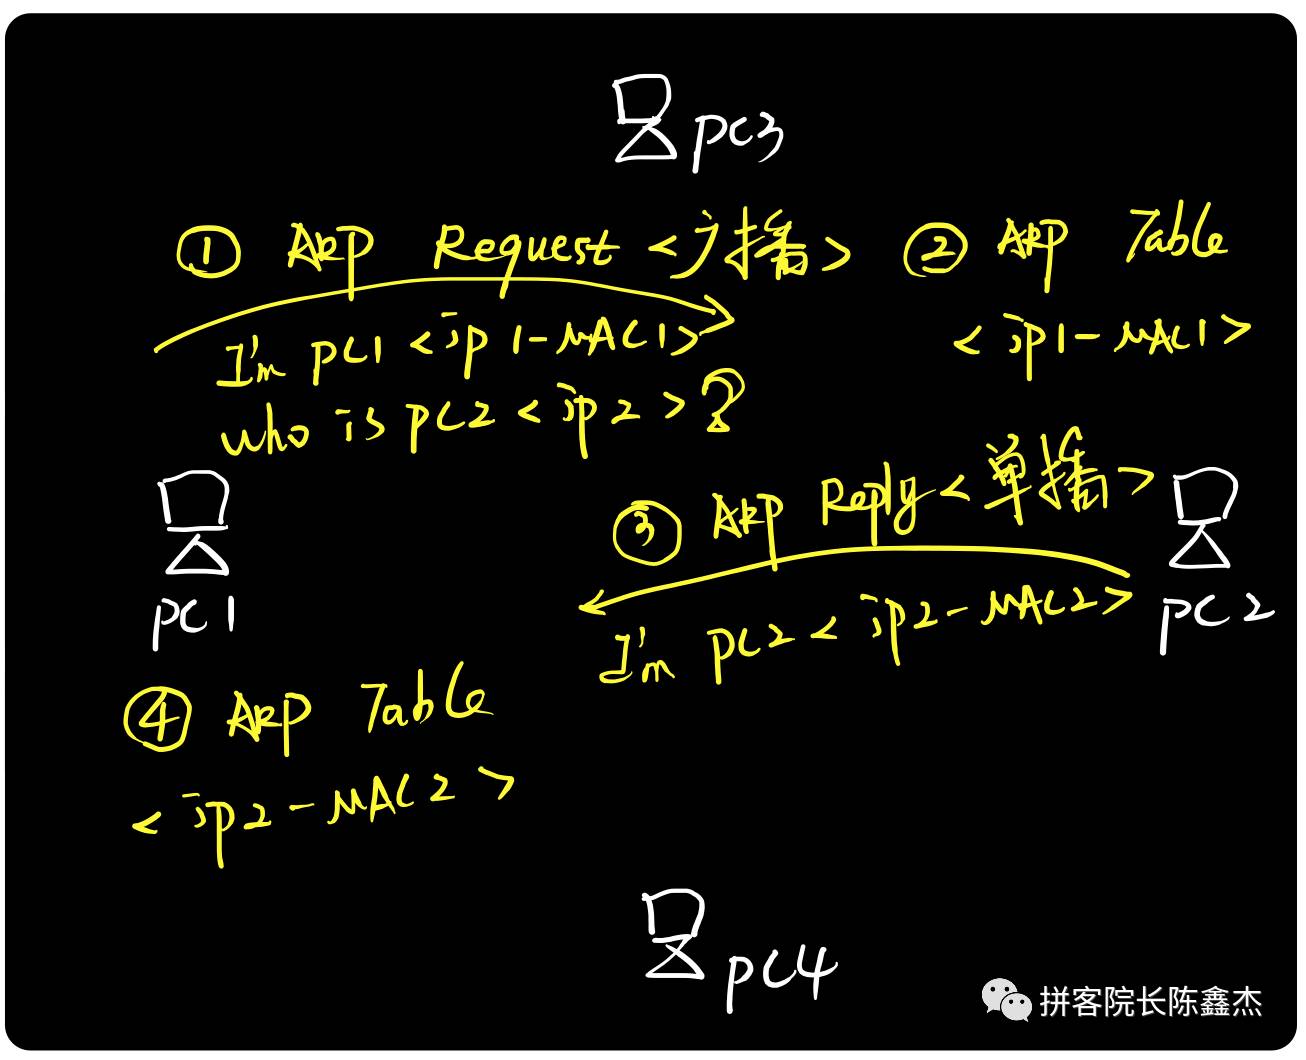 PC3
① ARP Request <广播>
I'm PC1 <ip1-MAC1>
who is PC2 <ip2>?
② ARP Table
<ip1-MAC1>
③ ARP Reply <单播>
I'm PC2 <ip2-MAC2>
PC1
PC2
④ ARP Table
<ip2-MAC2>
PC4
拼客院长陈鑫杰